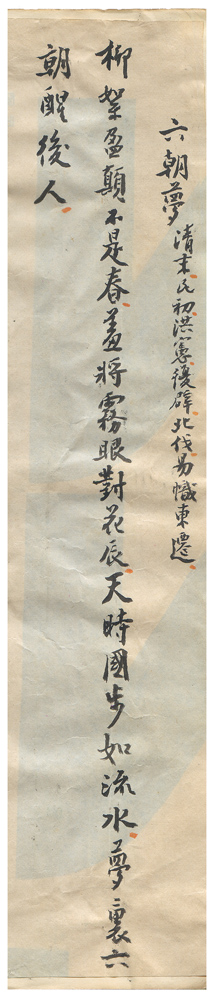 六朝夢清末民初洪憲復辟北伐易幟東遷
柳絮盈顛不是春羞將霧眼對花辰天時國步如流水夢裏六
朝醒後人